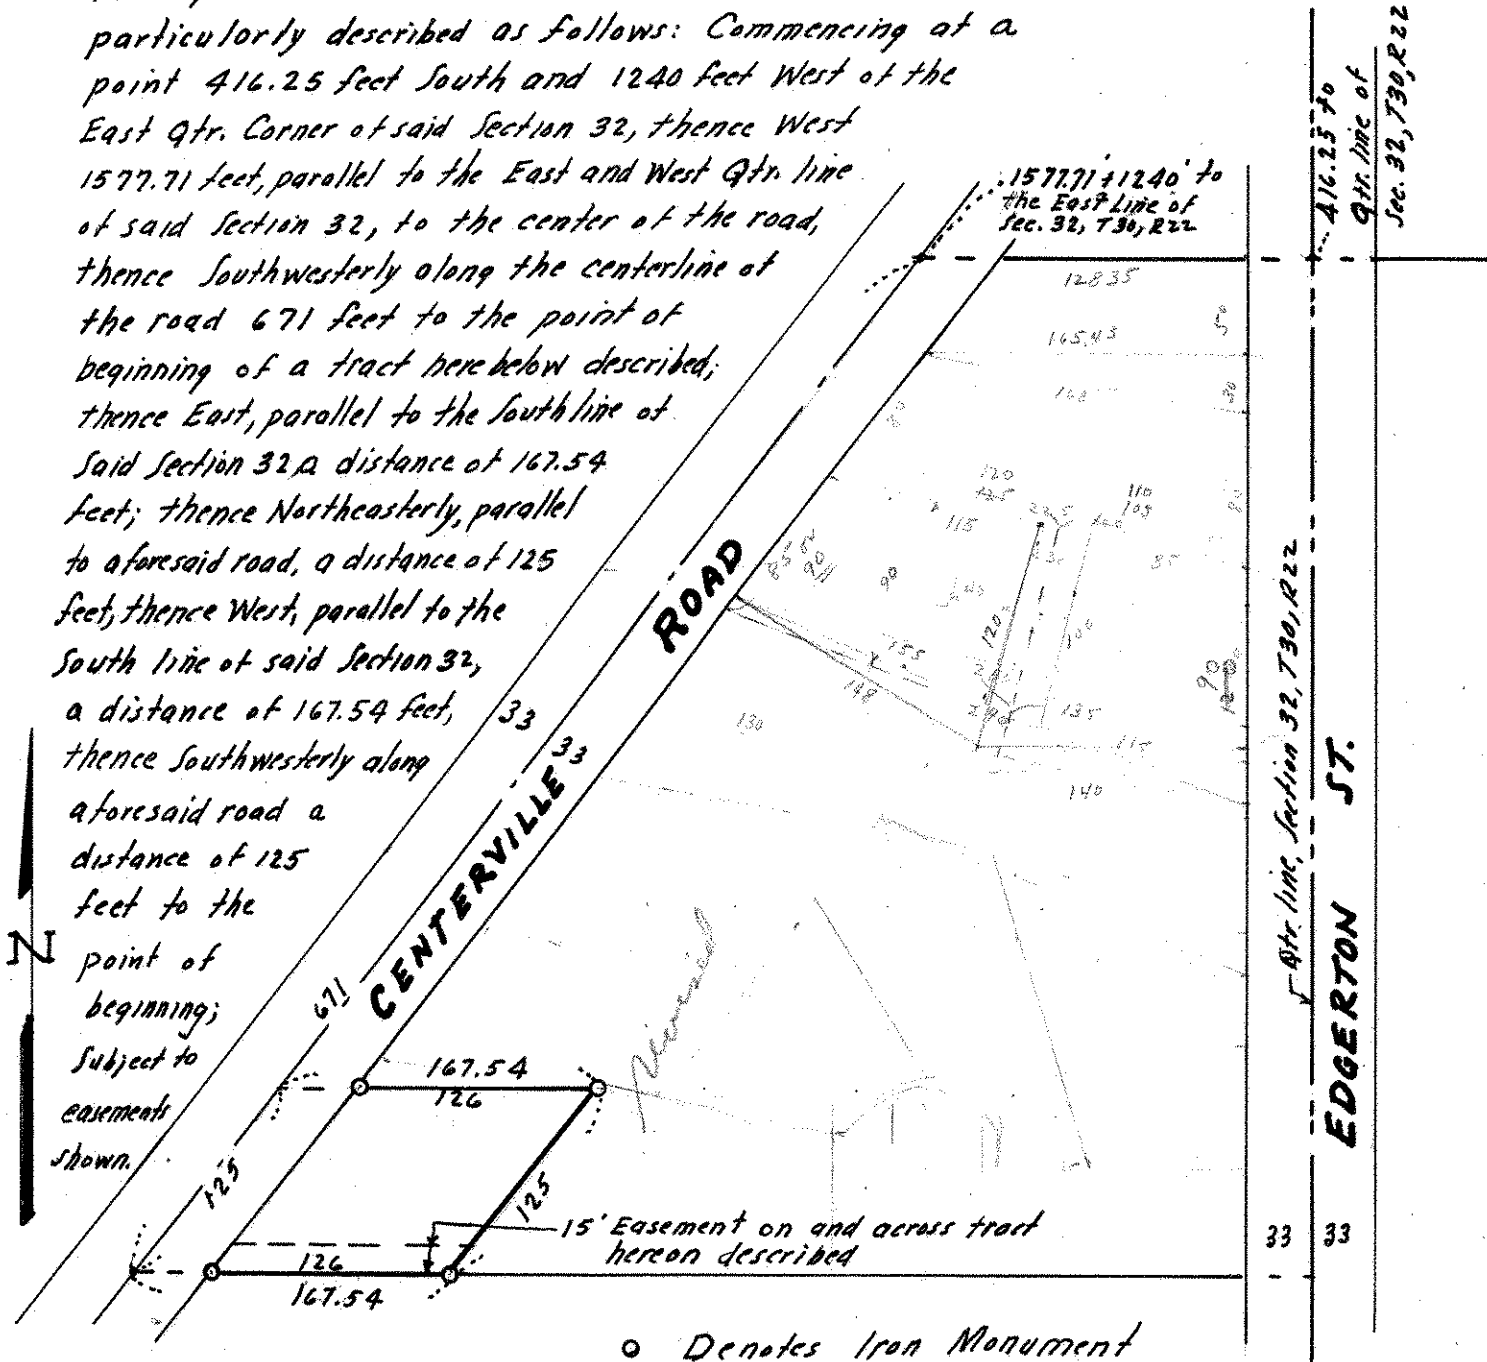 particularly described as follows: Commencing at a
point 416.25 feet South and 1240 feet West of the
East Qtr. Corner of said Section 32, thence West
1577.71 feet, parallel to the East and West Qtr. line
of said Section 32, to the center of the road,
thence Southwesterly along the centerline of
the road 671 feet to the point of
beginning of a tract herebelow described;
thence East, parallel to the South line of
Said Section 32, a distance of 167.54
feet; thence Northeasterly, parallel
to aforesaid road, a distance of 125
feet, thence West, parallel to the
South line of said Section 32,
a distance of 167.54 feet,
thence Southwesterly along
aforesaid road a
distance of 125
feet to the
point of
beginning;
Subject to
easements
shown.
N
1577.71'+1240' to
the East Line of
Sec. 32, T30, R22
416.25 to
Qtr. line of
Sec. 32, T30, R22
128.35
165.43
120
115
110
109
85
90
120
100
155
148
130
135
115
140
90
33
33
CENTERVILLE ROAD
671
125
167.54
126
125
126
167.54
15' Easement on and across tract
hereon described
Qtr. line, Section 32, T30, R22
EDGERTON ST.
33
33
o Denotes Iron Monument